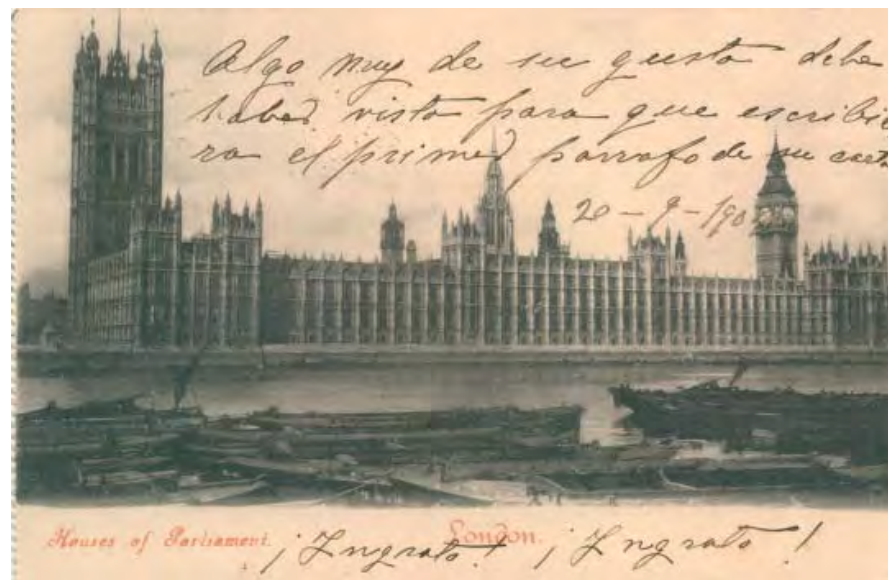 Algo muy de su gusto debe
haber visto para que escribie
ra el primer parrafo de su carta
20-9-190
Houses of Parliament.
London.
¡Ingrato! ¡Ingrato!